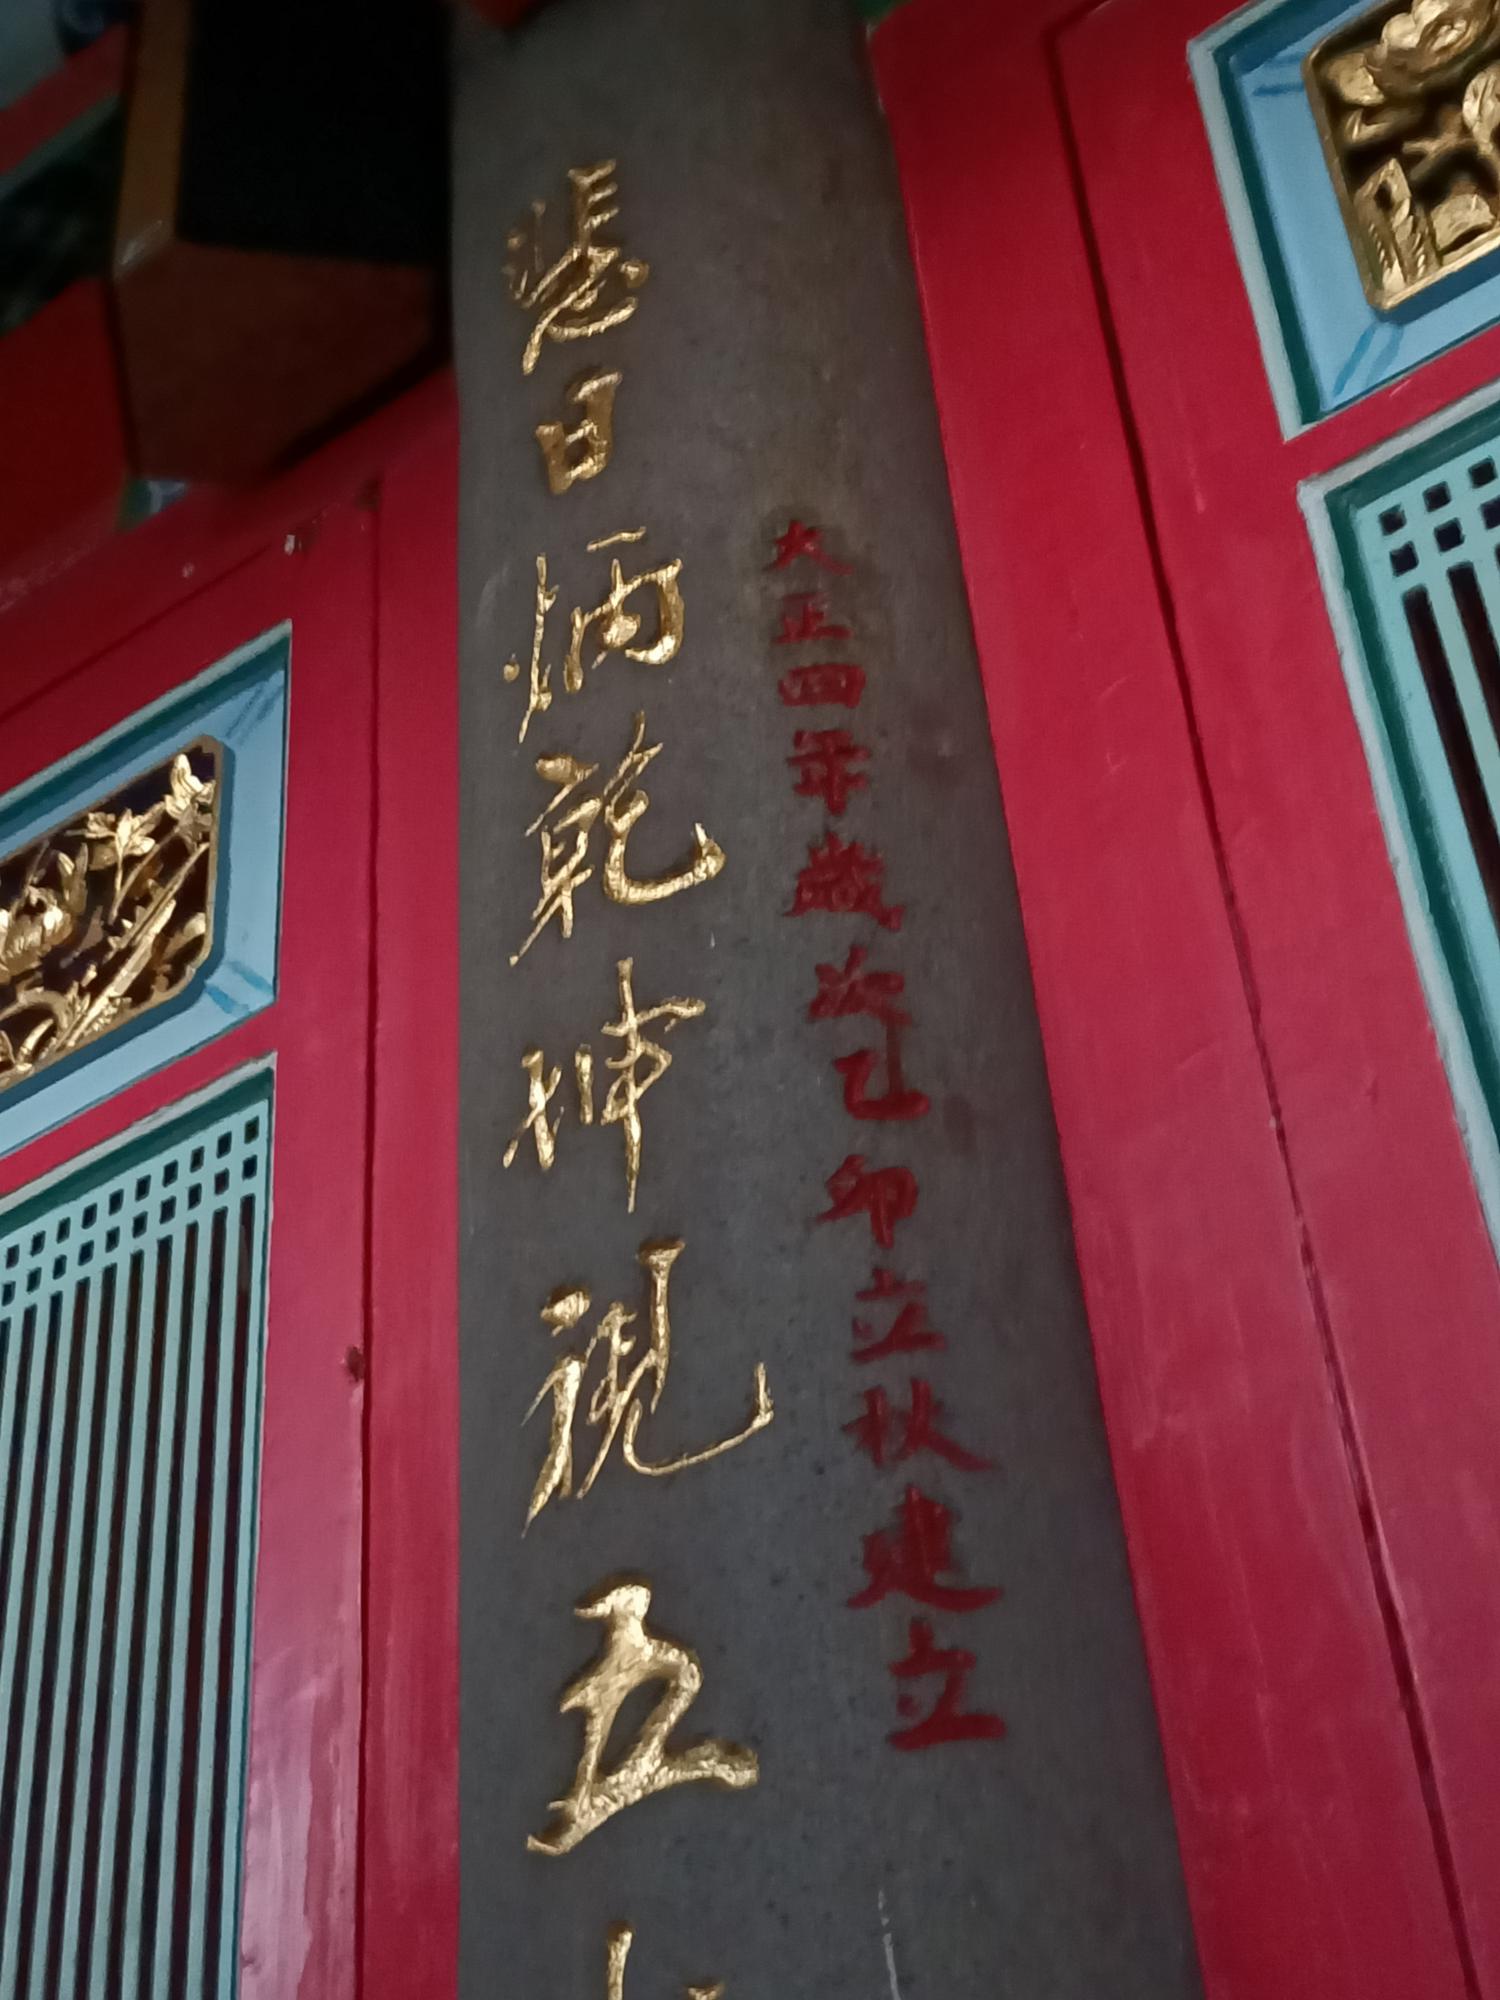 大正四年歲次乙卯立秋建立
日炳乾坤視五